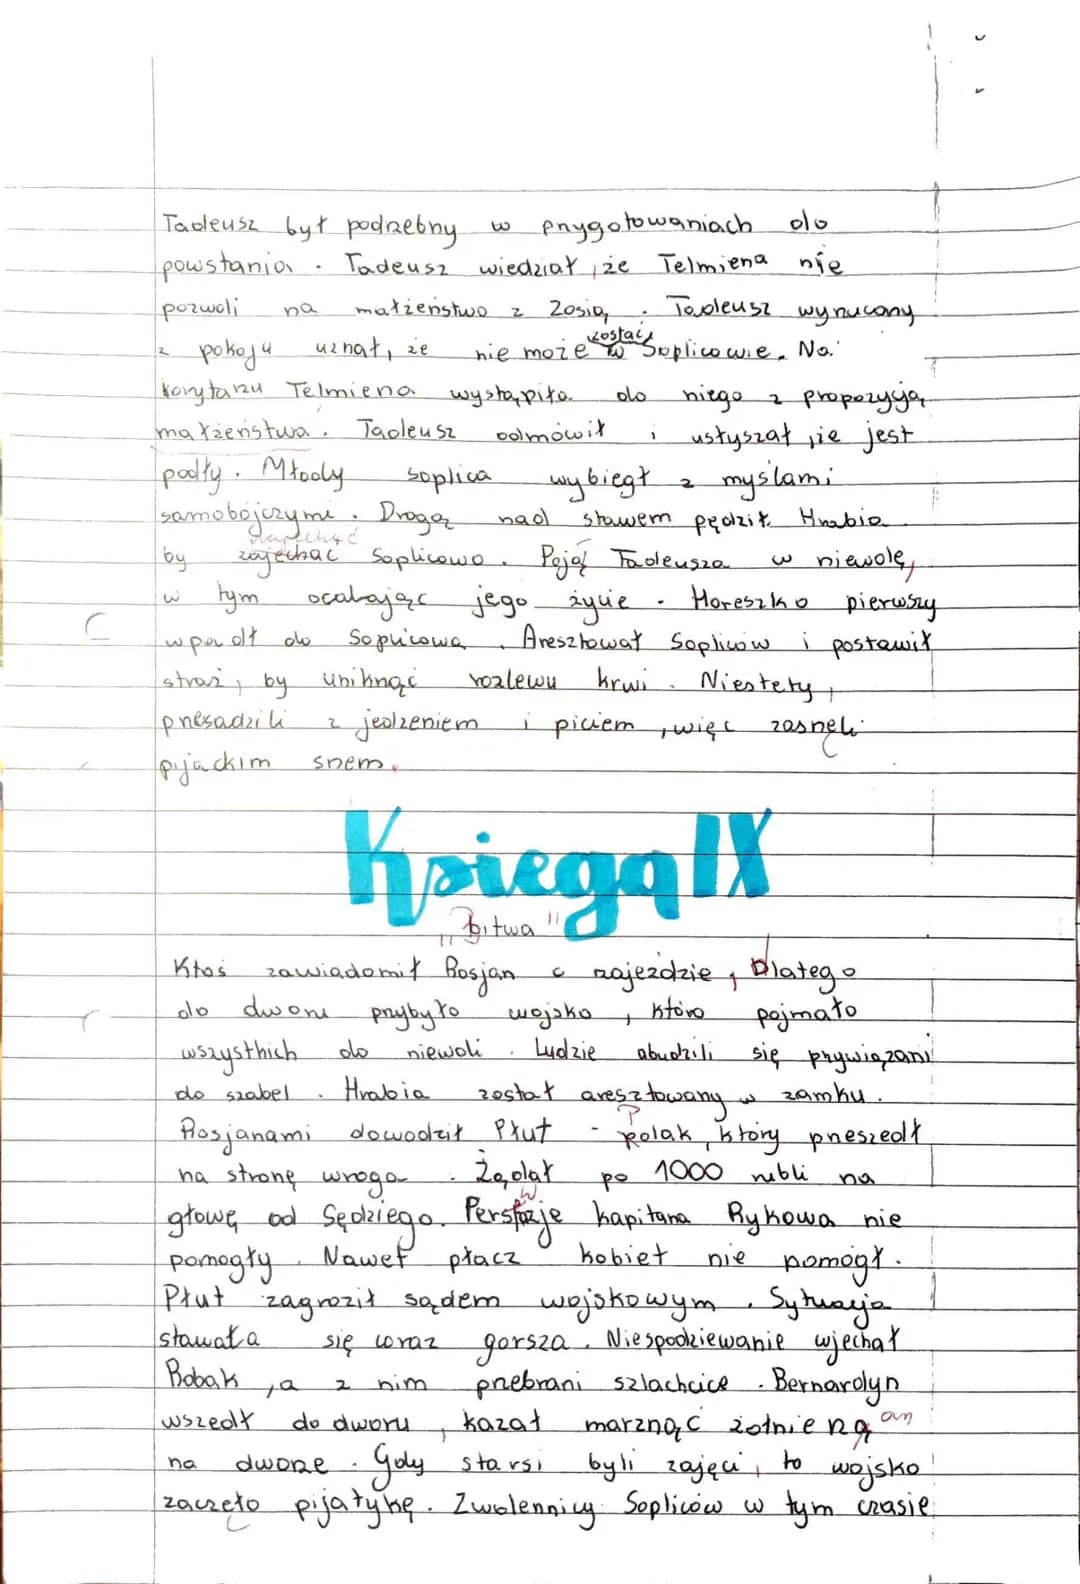 Tadeusz był podrzebny w przygotowaniach do
powstania. Tadeusz wiedział, że Telmiena nie
pozwoli na małżeństwo z Zosią. Tadeusz wyrzucony
zostać
z pokoju uznał, że nie może w Soplicowie. Na
korytarzu Telmiena wystąpiła do niego z propozycją
małżeństwa. Tadeusz odmówił i usłyszał, że jest
podły. Młody Soplica wybiegł z myślami
samobójczymi. Drogą nad stawem pędził Hrabia
by zajechać Soplicowo. Pojął Tadeusza w niewolę,
w tym ocalając jego życie. Horeszko pierwszy
wpadł do Soplicowa. Aresztował Sopliców i postawił
straż, by uniknąć rozlewu krwi. Niestety,
przesadzili z jedzeniem i piciem, więc zasnęli
pijackim snem.
Księga IX
"Bitwa"
Ktoś zawiadomił Rosjan o zajeździe, Dlatego
do dworu przybyło wojsko, które pojmało
wszystkich do niewoli. Ludzie obudzili się przywiązani
do szabel. Hrabia został aresztowany w zamku.
Rosjanami dowodził Płut - Polak, który przeszedł
na stronę wroga. Żądał po 1000 rubli na
głowę od Sędziego. Perswazje kapitana Rykowa nie
pomogły. Nawet płacz kobiet nie pomógł.
Płut zagroził sądem wojskowym. Sytuacja
stawała się coraz gorsza. Niespodziewanie wjechał
Robak, a z nim przebrani szlachcice. Bernardyn
wszedł do dworu, kazał marznąć żołnierzom
na dworze. Gdy starsi byli zajęci, to wojsko
zaczęło pijatykę. Zwolennicy Sopliców w tym czasie